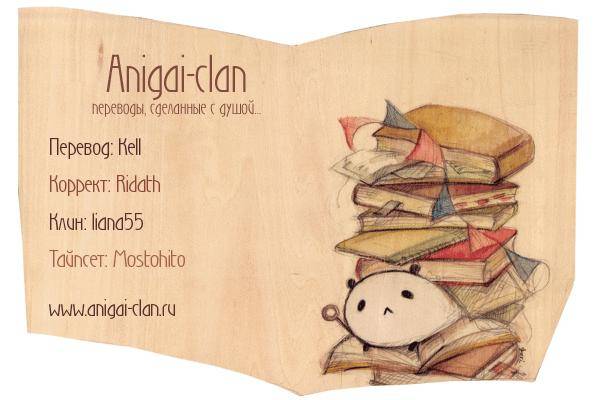 Anigai-clan
переводы, сделанные с душой...
Перевод: Kell
Коррект: Ridath
Клин: liana55
Тайпсет: Mostohito
www.anigai-clan.ru